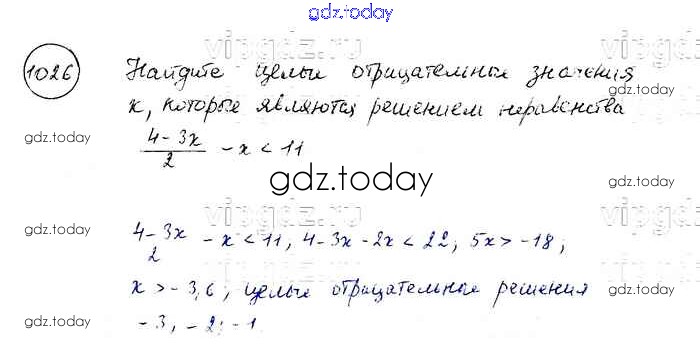 gdz.today
1026 Найдите целые отрицательные значения
gdz.today
x, которые являются решением неравенства
gdz.today gdz.today
(4-3x)/2 - x < 11
gdz.today
gdz.today
vipgdz.ru
gdz.today gdz.today
(4-3x)/2 - x < 11, 4-3x-2x < 22, 5x > -18,
x > -3,6, целые отрицательные решения
gdz.today gdz.today
-3, -2, -1